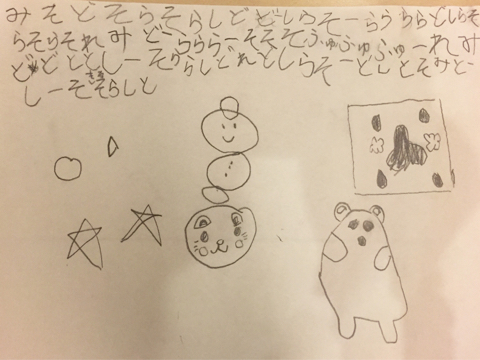 みそどそらそらしどどしらそーらうららどしらそ
らそらそれみどーらららーそそそふゅふゅふゅーれみ
どどどとしーそらしどれどしらそーどしどそみどー
しーそそらしと